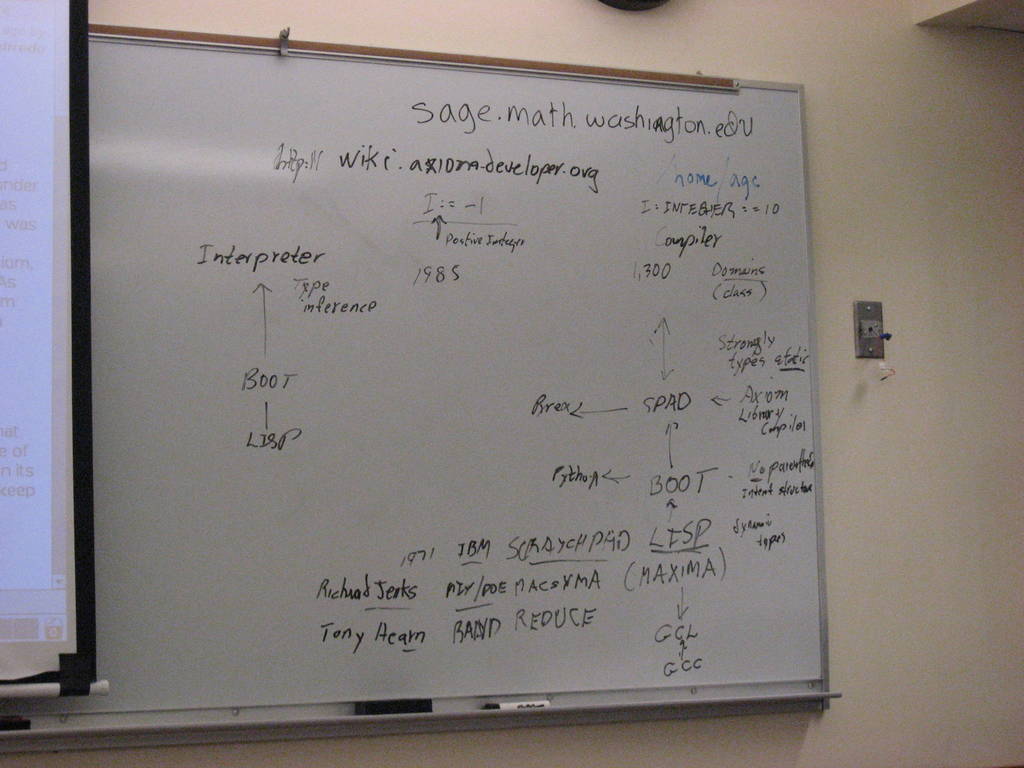 sage.math.washington.edu
http:// wiki.axiom-developer.org
/home/age
I := -1
I: INTEGER == 10
Positive Integer
Compiler
Interpreter
1985
1,300 Domains
(class)
Type
inference
Strongly
types static
BOOT
SPAD
Axiom
Library
Compiler
LISP
Python
BOOT
No parentheses
Intent structure
1971 IBM SCRATCHPAD LISP
dynamic
types
Richard Jenks MIT/DOE MACSYMA (MAXIMA)
Tony Hearn RAND REDUCE
GCL
GCC
nder
as
was
As
m
hat
e of
n its
keep